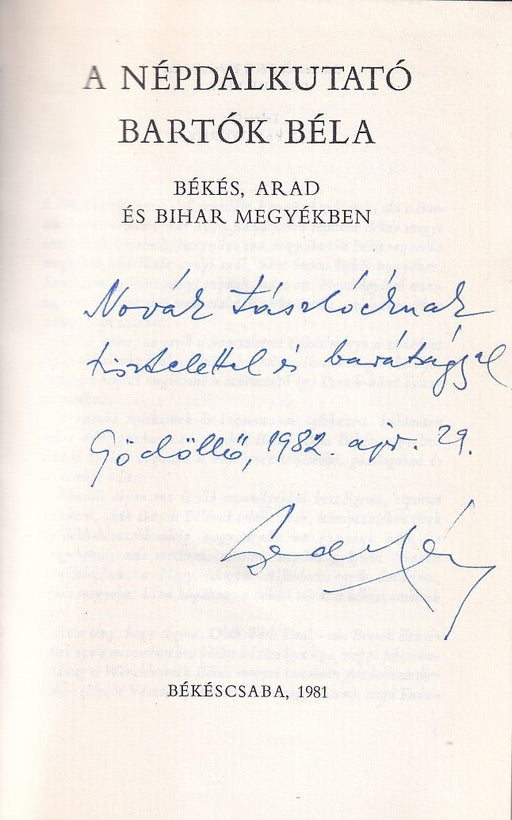 A NÉPDALKUTATÓ
BARTÓK BÉLA
BÉKÉS, ARAD
ÉS BIHAR MEGYÉKBEN
Novák Lászlóéknak
tisztelettel és barátsággal
Gödöllő, 1982. ápr. 29.
BÉKÉSCSABA, 1981